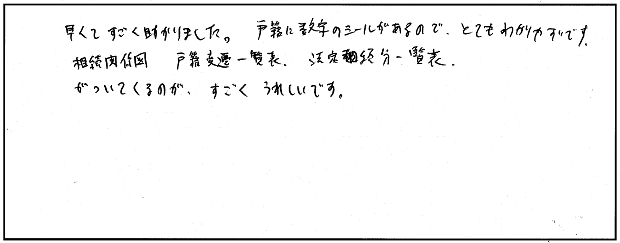 早くてすごく助かりました。 戸籍に数字のシールがあるので、とてもわかりやすいです。
相続関係図 戸籍変遷一覧表、 法定相続分一覧表、
がついてくるのが、すごく うれしいです。